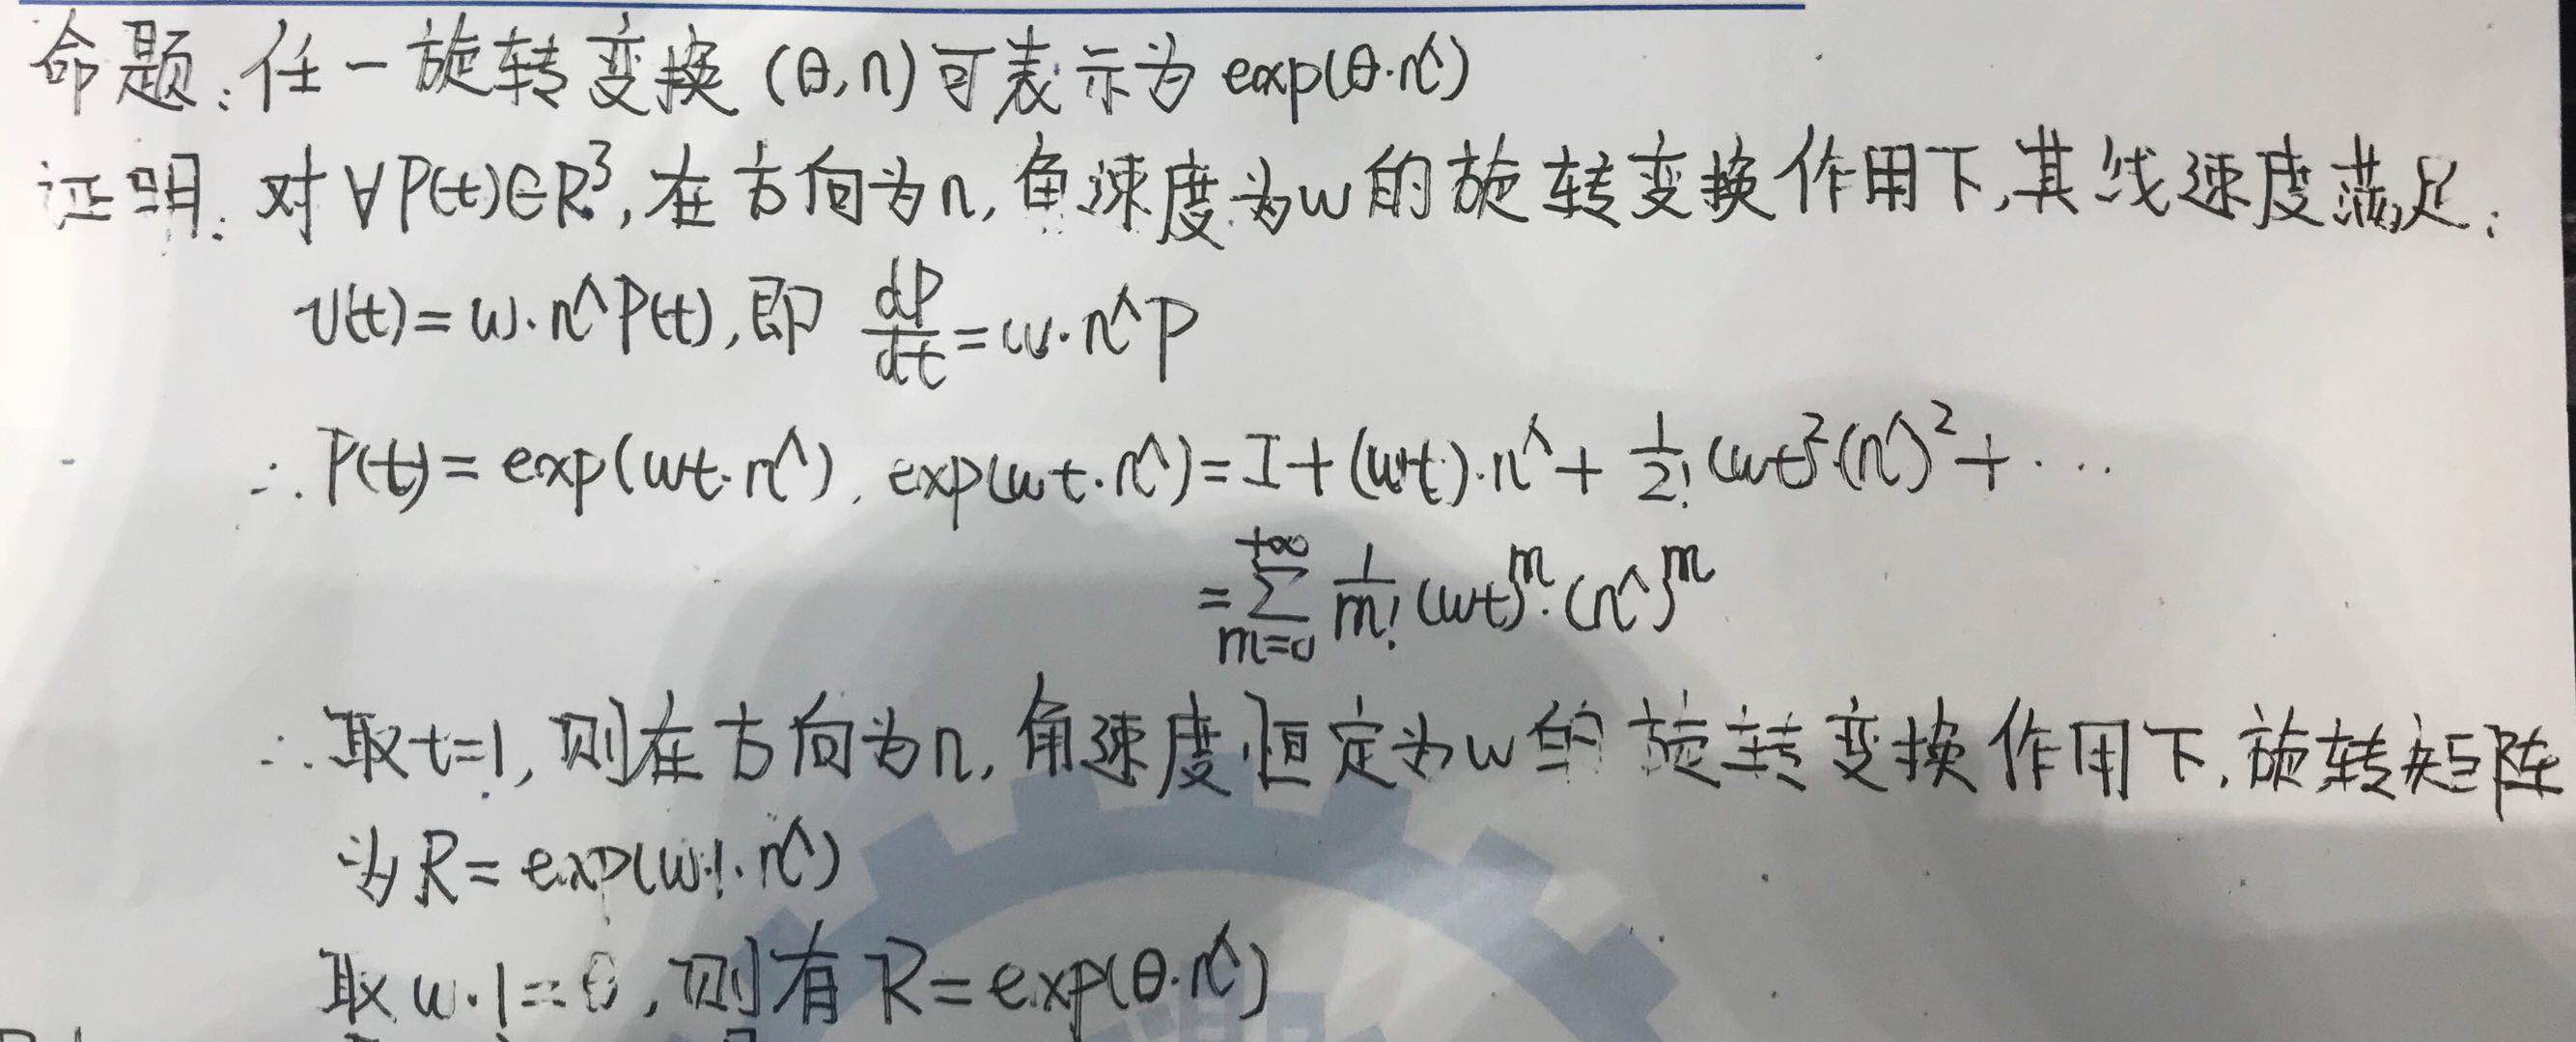 命题:任一旋转变换(θ,n)可表示为 exp(θ·n^)
证明:对∀P(t)∈R³,在方向为n,角速度为w的旋转变换作用下,其线速度满足:
v(t)=w·n^P(t),即 dP/dt=w·n^P
∴P(t)=exp(wt·n^). exp(wt·n^)=I+(wt)·n^+1/2!(wt)²(n^)²+···
=∑_{m=0}^{+∞} 1/m!(wt)^m·(n^)^m
∴取t=1,则在方向为n,角速度恒定为w的旋转变换作用下,旋转矩阵
为R=exp(w·1·n^)
取w·1=θ,则有R=exp(θ·n^)